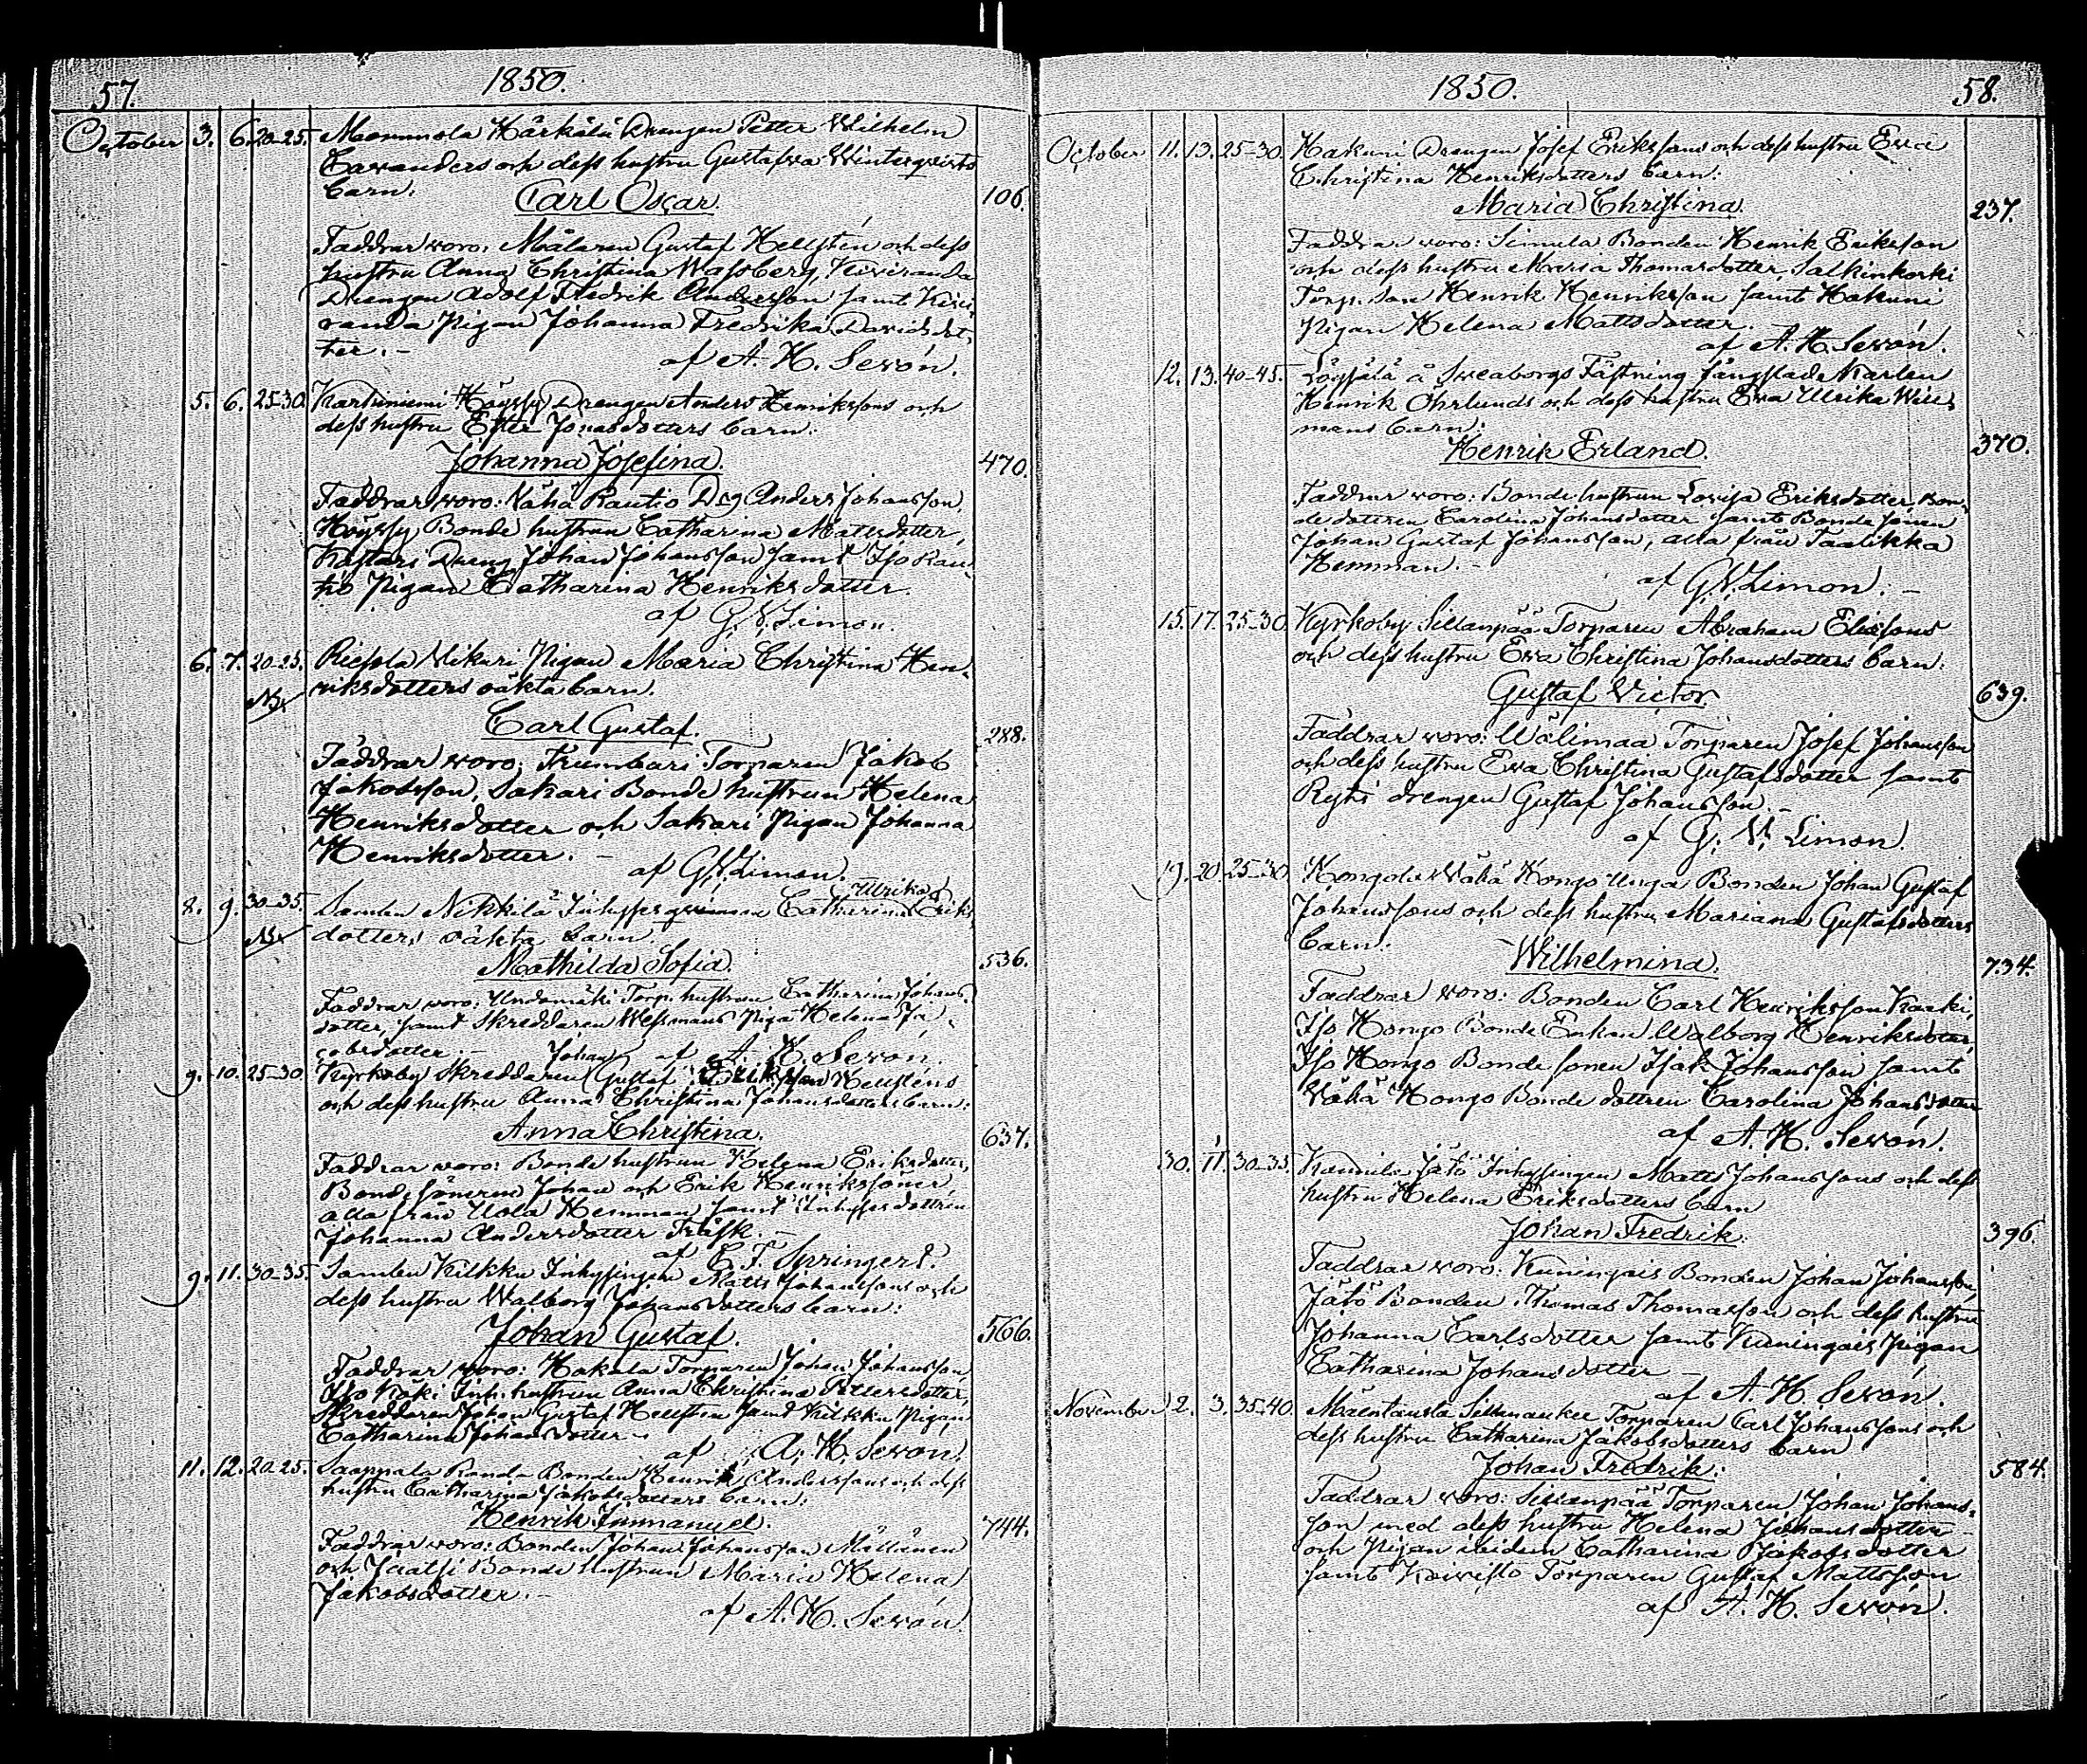 57.
1850.
October 3. 6. 20-25. Mommola Härkälä Drengen Petter Wilhelm
Cavanders och dess hustru Gustafva Winterqvists
barn.
Carl Oscar. 106.
Faddrar voro: Målaren Gustaf Hellstén och dess
hustru Anna Christina Wassberg, Kiviranda
Drengen Adolf Fredrik Andersson samt Kivi-
randa Pigan Johanna Fredrika Davidsdot-
ter. -
af A. H. Sevón.
5. 6. 25-30. Karhiniemi Höyssy Drengen Anders Henrikssons och
dess hustru Ester Jonasdotters barn.
Johanna Josefina. 470.
Faddrar voro: Vähä Rautio Drg Anders Johansson,
Höyssy Bonde hustrun Catharina Mattsdotter,
Dreng Johan Johansson samt Iso Rau-
tio Pigan Catharina Henriksdotter.
af G. V. Limon.
6. 7. 20-25. Riesola Vikari Pigan Maria Christina Hen-
riksdotters oäkta barn.
Carl Gustaf. 288.
Faddrar voro: Trumbari Torparen Jakob
Jakobsson, Sakari Bonde hustrun Helena
Henriksdotter och Sakari Pigan Johanna
Henriksdotter. -
af G. V. Limon.
Ulrika
8. 9. 30-35. Sambu Nikkilä Catharina Eriks-
dotters oäkta barn.
Mathilda Sofia. 536.
Faddrar voro: Undamäki Torp. hustrun Catharina Johans-
dotter, samt Skreddaren Wessmans Piga Helena Ja-
cobsdotter. -
af A. H. Sevón.
Johan
9. 10. 25-30. Kyrkoby Skreddaren Gustaf Eriksson Hellsténs
och dess hustru Anna Christina Johansdotters barn:
Anna Christina. 637.
Faddrar voro: Bonde hustrun Helena Eriksdotter,
Bondesönerne Johan och Erik Henrikssoner
alla från Uola Hemman samt Inhyses dottren
Johanna Andersdotter Träsk. -
af C. F. Springert.
9. 11. 30-35. Sambu Kilkku Inhysingen Matts Johanssons och
dess hustru Walborg Johansdotters barn:
Johan Gustaf. 566.
Faddrar voro: Hakala Torparen Johan Johansson,
Iso Käki Inh. hustrun Anna Christina Pettersdotter,
Skreddaren Johan Gustaf Hellstén samt Kilkku Pigan
Catharina Johansdotter -
af A. H. Sevón.
11. 12. 20-25. Sampala Randa Bonden Henrik Anderssons och dess
hustru Catharina Jakobsdotters barn:
Henrik Immanuel. 744.
Faddrar voro: Bonden Johan Johansson Mällänen
och Bonde hustrun Maria Helena
Jakobsdotter. -
af A. H. Sevón.
1850.
58.
October 11. 13. 25-30. Hakuni Drengen Josef Erikssons och dess hustru Eva
Christina Henriksdotters barn:
Maria Christina. 237.
Faddrar voro: Simula Bonden Henrik Eriksson
och dess hustru Maria Thomasdotter, Salkinkoski
Torp. son Henrik Henriksson samt Hakuni
Pigan Helena Mattsdotter.
af A. H. Sevón.
12. 13. 40-45. å Sveaborgs Fästning fängslade Karlen
Henrik Öhrlunds och dess hustru Eva Ulrika Will-
mans barn:
Henrik Erland. 370.
Faddrar voro: Bonde hustrun Lovisa Eriksdotter, Bon-
de dottren Carolina Johansdotter samt Bonde sonen
Johan Gustaf Johansson, alla från Taalikka
Hemman. -
af G. V. Limon. -
15. 17. 25-30. Kyrkoby Sillanpää Torparen Abraham Eliæsons
och dess hustru Eva Christina Johansdotters barn:
Gustaf Victor 639.
Faddrar voro: Wälimaa Torparen Josef Johansson
och dess hustru Eva Christina Gustafsdotter samt
Ryhi drengen Gustaf Johansson. -
af G. V. Limon.
19. 20. 25-30. Kongola Vähä Hongo Unga Bonden Johan Gustaf
Johanssons och dess hustru Mariana Gustafsdotters
barn:
Wilhelmina. 734.
Faddrar voro: Bonden Carl Henriksson Kaaki,
Iso Hongo Bonde Enkan Walborg Henriksdotter,
Iso Hongo Bonde sonen Isak Johansson samt
Vähä Hongo Bonde dottren Carolina Johansdotter
af A. H. Sevón.
30. 1/11. 30-35. Kaunila Jätö Inhysingen Matts Johanssons och dess
hustru Helena Eriksdotters barn
Johan Fredrik. 396.
Faddrar voro: Kuningais Bonden Johan Johansson,
Jätö Bonden Thomas Thomasson och dess hustru
Johanna Carlsdotter samt Kuningais Pigan
Catharina Johansdotter -
af A. H. Sevón.
November 2. 3. 35-40. Mäentausta Sillanaukee Torparen Carl Johanssons och
dess hustru Catharina Jakobsdotters barn
Johan Fredrik: 584.
Faddrar voro: Sillanpää Torparen Johan Johans-
son med dess hustru Helena Johansdotter
och Pigan Catharina Jakobsdotter
samt Koivisto Torparen Gustaf Mattsson
af A. H. Sevón.